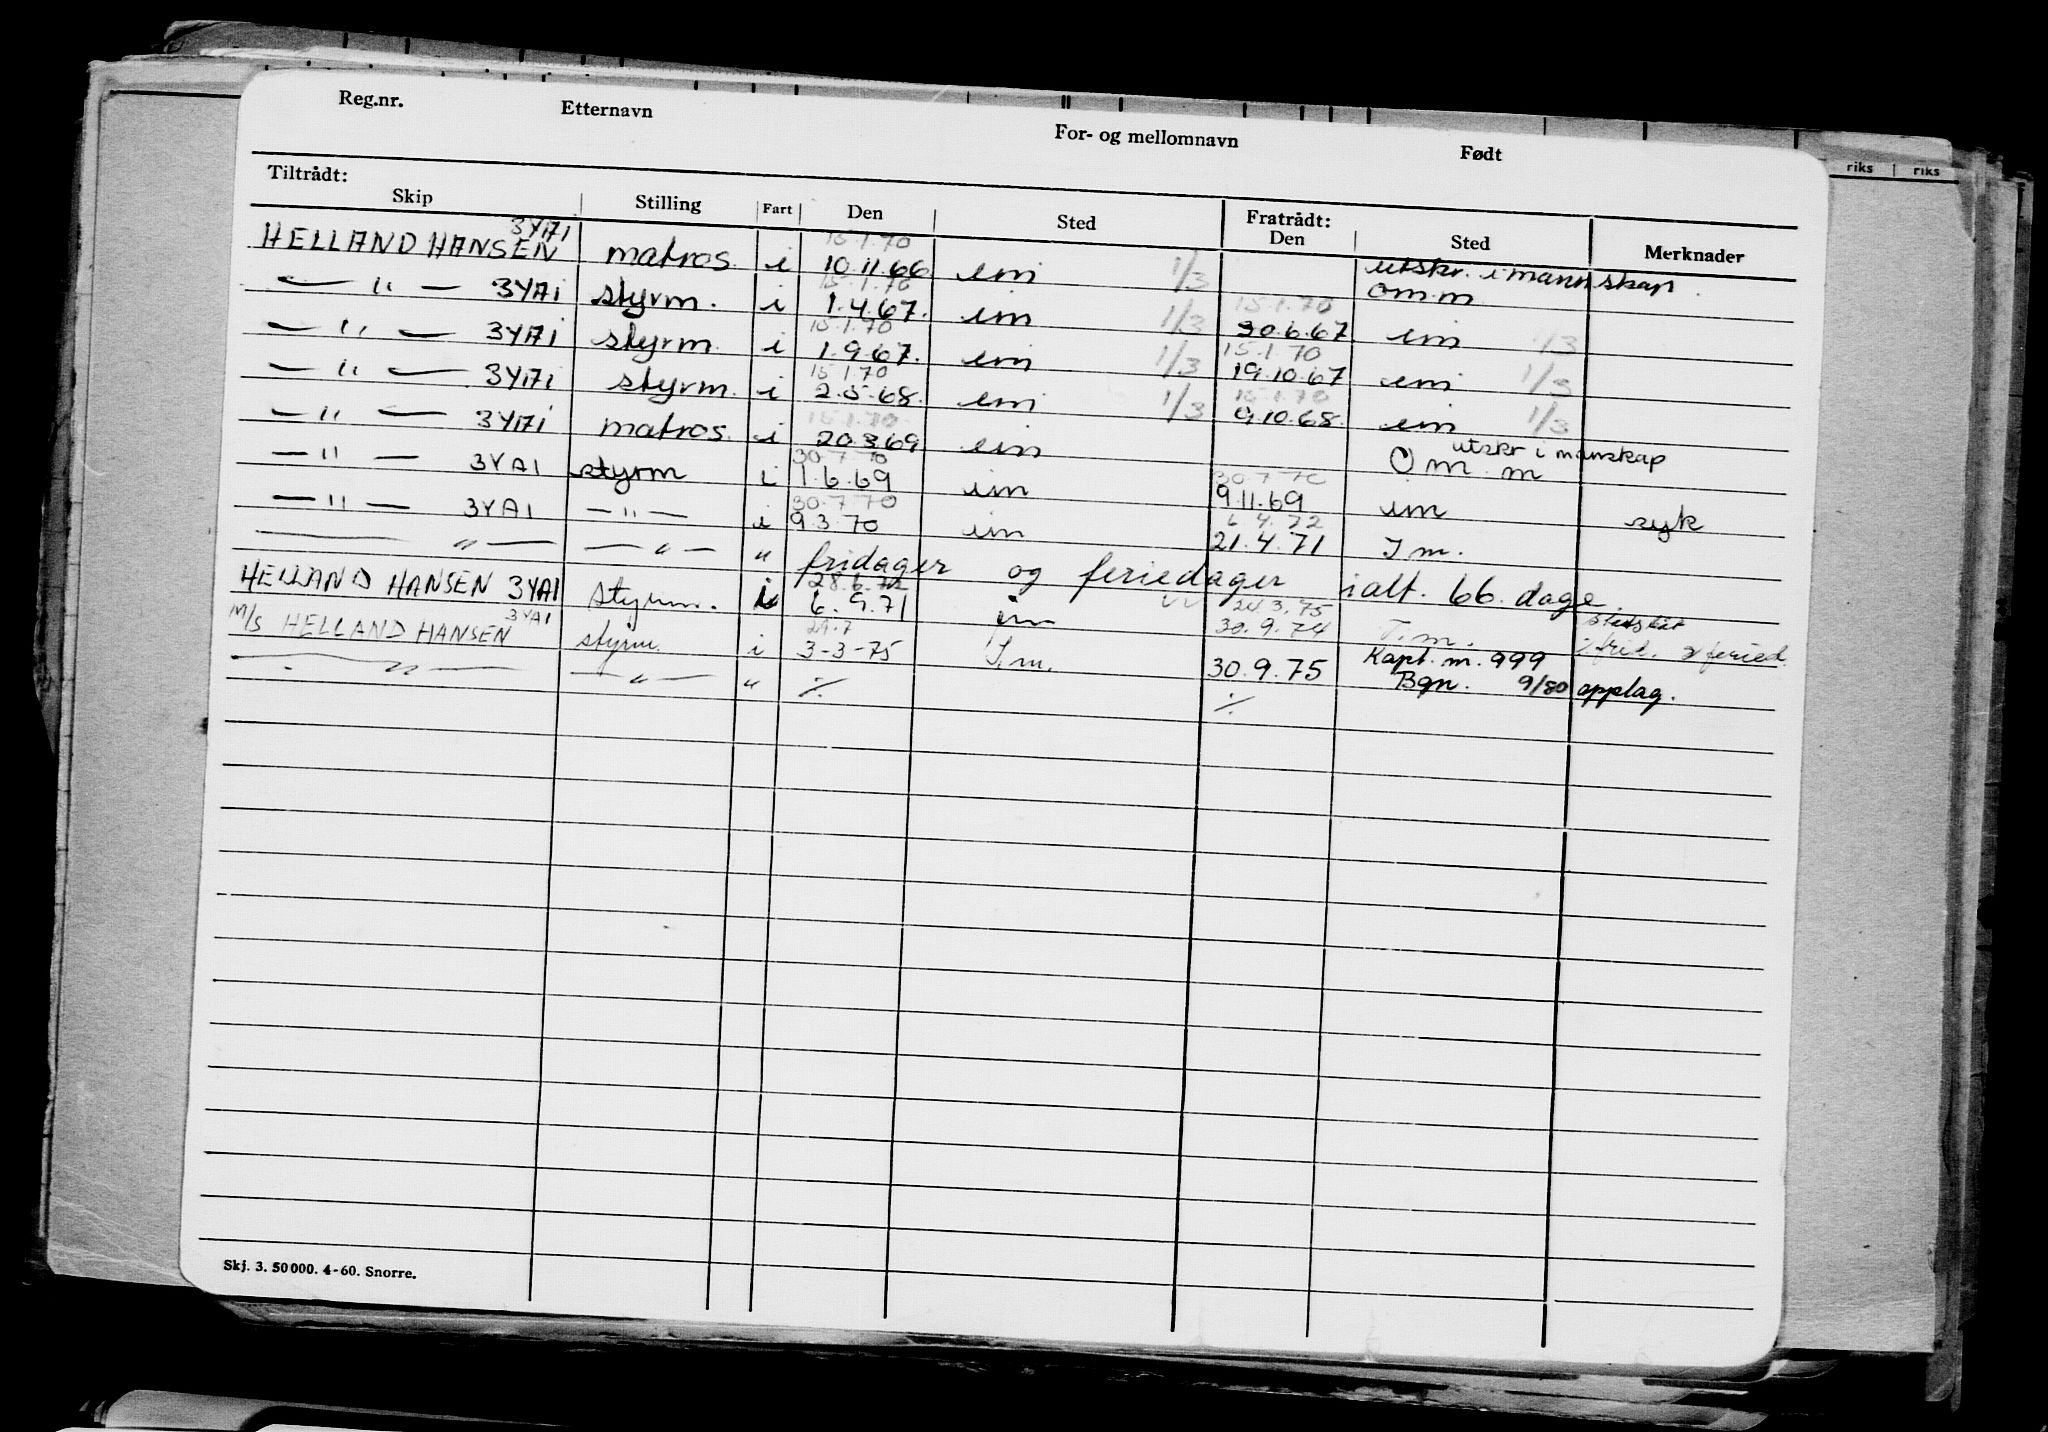 Reg.nr. Etternavn For- og mellomnavn Født
riks riks
Tiltrådt: Fratrådt:
Skip Stilling Fart Den Sted Den Sted Merknader
3YAI 15.1.70
HELLAND HANSEN matros i 10.11.66 im 1/3 utskr. i mannskap
15.1.70 om.m
— " — 3YAI styrm. i 1.4.67. im 1/3 30.6.67 im 1/3
15.1.70 15.1.70
— " — 3YAI styrm. i 1.9.67. im 1/3 19.10.67 im 1/3
15.1.70 15.1.70
— " — 3YAI styrm. i 2.5.68. im 1/3 9.10.68. im 1/3
15.1.70 15.1.70
— " — 3YAI matros. i 20.3.69 im utskr i manskap
30.7.70 Om.m
— " — 3YAI styrm i 1.6.69 im 9.11.69 im syk
30.7.70 30.7.70
— " — 3YAI — " — i 9.3.70 im 21.4.71 I m.
6.4.72
— " — — " — " fridager og feriedager ialt. 66. dage.
28.6.72
HELLAND HANSEN 3YAI styrm. i 6.9.71 im 30.9.74 I.m.
24.3.75
M/S HELLAND HANSEN 3YAI styrm. i 3-3-75 I.m. 30.9.75 Kapt. m. 999 i frid. & feried.
29.7
— " — — " — " ./. ./. Bgn. 9/80 opplag.
Skj. 3. 50 000. 4-60. Snorre.